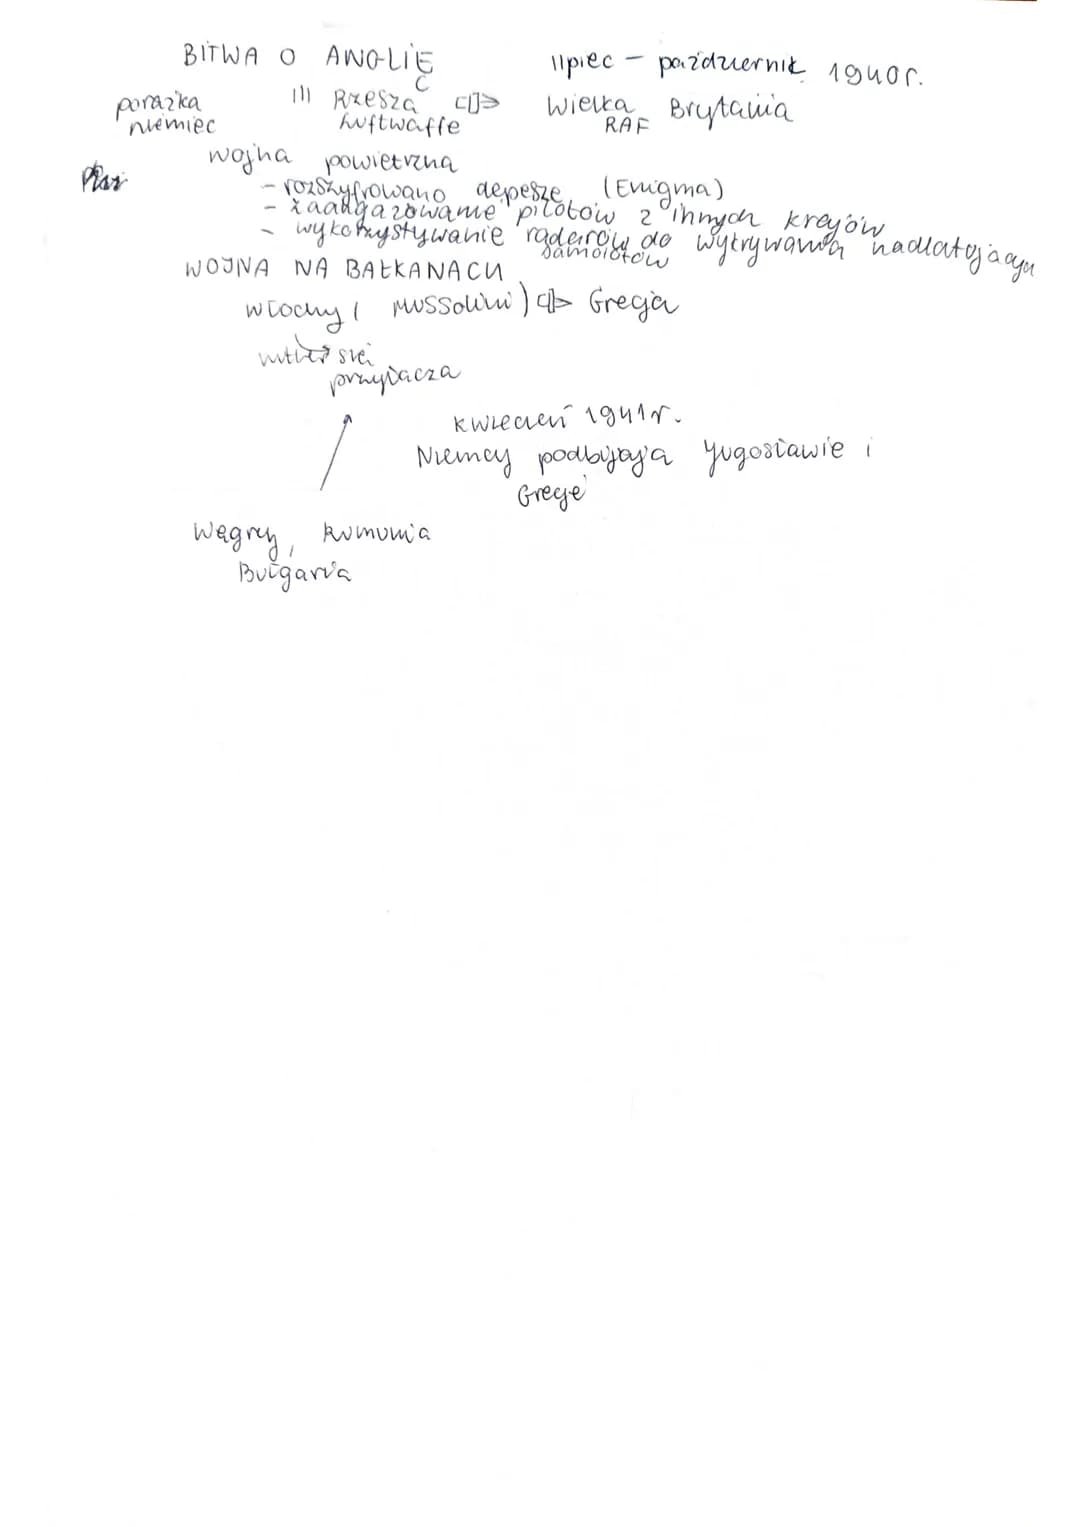 BITWA O ANGLIĘ lipiec – październik 1940r.
porażka niemiec
III Rzesza Luftwaffe
Wielka Brytania RAF
wojna powietrzna
- rozszyfrowano depesze (Enigma)
- zaangażowanie pilotów z innych krajów
- wykorzystywanie radarów do wykrywania nadlatujących samolotów
WOJNA NA BAŁKANACH
Włochy (Mussolini) Grecja
Hitler się
przyłącza
kwiecień 1941r.
Niemcy podbijają Jugosławię i
Grecję
Węgry, Rumunia
Bułgaria